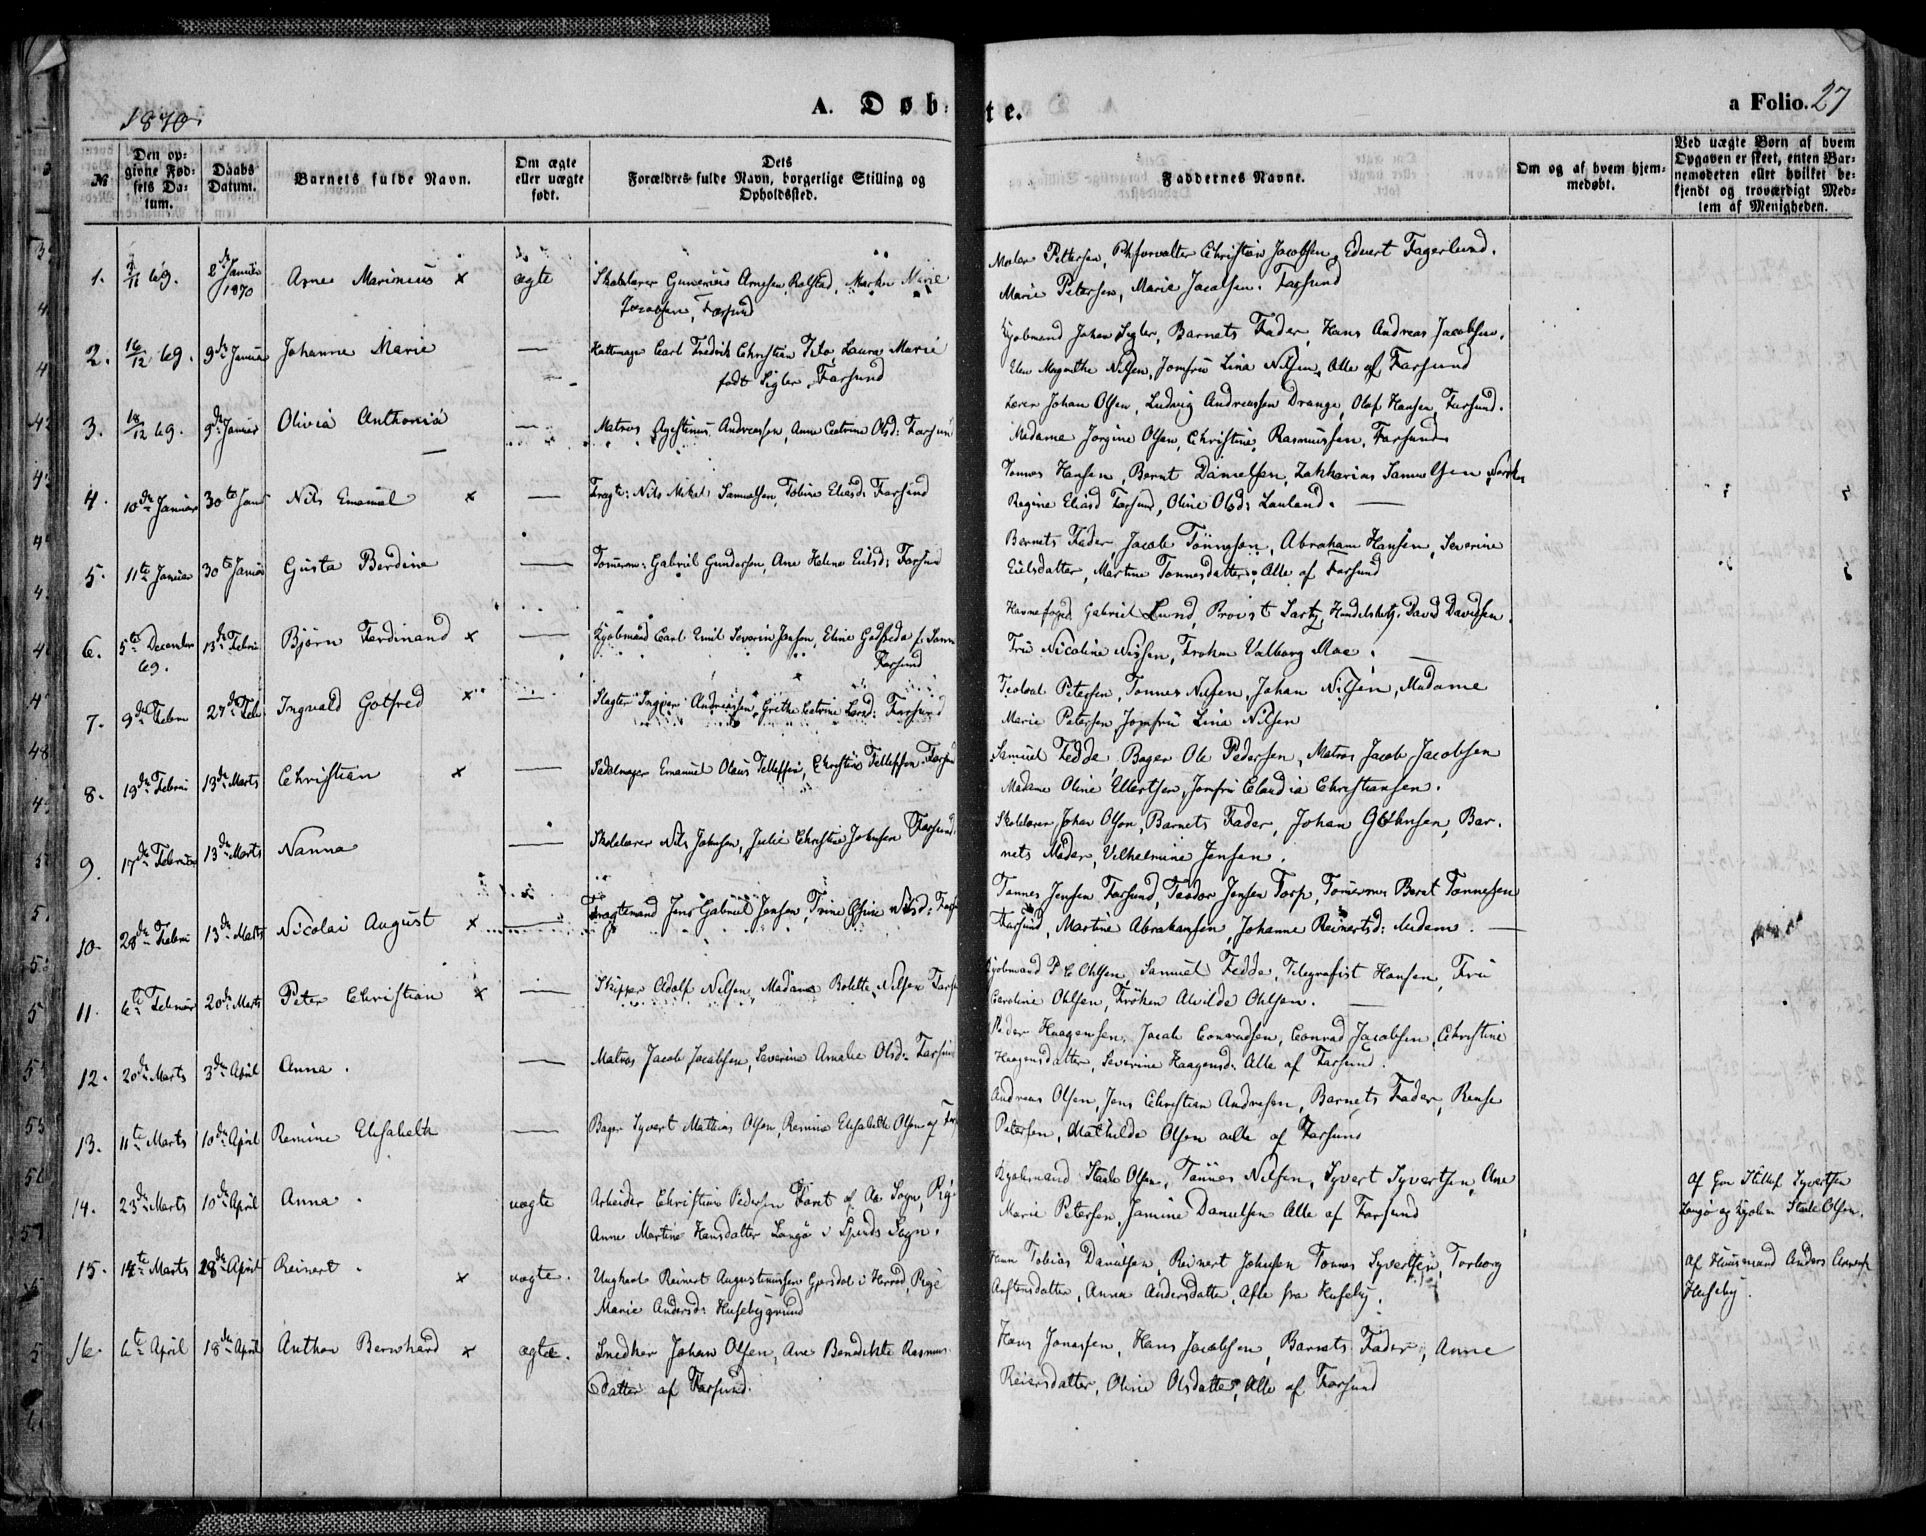 1870.
A. Døbte.
a Folio. 27
№
Den opgivne Fødsels Datum.
Daabs Datum.
Barnets fulde Navn.
Om ægte eller uægte født.
Dets Forældres fulde Navn, borgerlige Stilling og Opholdssted.
Faddernes Navne.
Om og af hvem hjemmedøbt.
Ved uægte Børn af hvem Opgaven er skeet, enten Barnemoderen eller hvilket bekjendt og troværdigt Medlem af Menigheden.
1. 69. 2den Januar 1870 Arne Marinius x ægte Skolelærer Gunerius Arnesen Rolstad, Marie
Jacobsen, Farsund
Petersen, Christian Jacobsen, Edvert Fagerlund.
Marie Petersen, Marie Jacobsen. Farsund
2. 16/12 69. 9de Januar Johanne Marie — Hattmager Carl Fredrik Christian Tilo, Laura Marie
født Sigler, Farsund
Kjøbmand Johan Sigler, Barnets Fader, Hans Andreas Jacobsen,
Elen Margrethe Nilsen, Jomfru Lina Nilsen, Alle af Farsund
3. 18/12 69. 9de Januar Olivia Anthonia — Matros Agustinus Andreassen, Anne Catrine Olsd: Farsund
Lærer Johan Olsen, Ludvig Andreassen Drange, Olaf Hansen, Farsund.
Madame Jorgine Olsen, Christine Rasmussen, Farsund
4. 10de Januar 30te Janr Nils Emanuel x — Fragtm: Nils Mikal Samuelsen, Tobine Eliasd: Farsund
Tønnes Hansen, Bernt Danielsen, Zakkarias Samuelsen
Regine Eliasd Farsund, Oline Olsd: Lauland. —
5. 11te Januar 30te Januar Gusta Berdine — Tømerm: Gabriel Gundersen, Ane Helene Eilsd: Farsund
Barnets Fader, Jacob Tønnesen, Abraham Hansen, Severine
Eilsdatter, Martine Tønnesdatter, Alle af Farsund
6. 5te December 69. 13de Febru Bjørn Ferdinand x — Kjøbmand Carl Emil Severin Jensen, Eline Godfreda f.
Farsund
Havnefoged Gabriel Lund, Provst Sartz, David Davidsen.
Fru Nicoline Nissen, Frøken Valborg Moe. —
7. 9de Febru 27de Feb Ingvald Gotfred x — Slagter Ingvar Andreassen, Grethe Catrine Farsund
Petersen, Tønnes Nilsen, Johan Nilsen, Madame
Marie Petersen Jomfru Lina Nilsen
8. 19de Febru 13de Marts Christian x — Sadelmager Emanuel Olaus Tellefsen, Christine Tellefsen Farsund
Samuel Fedde, Bager Ole Pedersen, Matros Jacob Jacobsen
Madame Oline Ellertsen, Jomfru Claudia Christiansen.
9. 17de Februar 13de Marts Nanna — Skolelærer Nils Johnsen, Julie Christine Johnsen Farsund
Skolelærer Johan Olsen, Barnets Fader, Johan Johnsen, Bar-
nets Moder, Vilhelmine Jensen.
10. 28de Febru 13de Marts Nicolai August x — Fragtemand Jens Gabriel Jensen, Trine Nilsd: Fars
Tønnes Jensen Farsund, Teodor Jensen Torp, Tømermn Bernt Tønnesen
Farsund, Martine Abrahamsen, Johanne Reinertsd: —
11. 6te Februar 20de Marts Peter Christian x — Skipper Adolf Nilsen, Madame Bolette Nilsen Farsu
Kjøbmand P C Ohlsen, Samuel Fedde, Telegrafist Hansen, Fru
Caroline Ohlsen, Frøken Alvilde Ohlsen. —
12. 20de Marts 3de April Anna. — Matros Jacob Jacobsen, Severine Amalie Olsd: Farsund
Peder Haagensen, Jacob Conradsen, Conrad Jacobsen, Christine
Haagensdatter, Severine Haagensd: Alle af Farsund.
13. 11te Marts 10de April Remine Elisabeth — Bager Syvert Mathias Olsen, Remine Elisabeth Olsen af Fars
Andreas Olsen, Jens Christian Andresen, Barnets Fader,
Petersen, Mathilde Olsen alle af Farsund
14. 23de Marts 10de April Anna. uægte Arbeider Christian Pedersen af Sogn, Pige
Anne Martine Hansdatter Langø i Spinds Sogn.
Kjøbmand Steele Olsen, Tønnes Nilsen, Syvert Syvertsen, Ane
Marie Petersen, Jamine Danielsen Alle af Farsund
Af Tellef Syvertsen
Langø og Kjøbm Steele Olsen.
15. 14te Marts 18de April Reinert. x uægte. Ungkarl Reinert Augustinussen Gjersdal i Herred, Pige
Marie Andersd: Husebygrund
Tobias Danielsen, Reinert Johnsen Tønnes Syvertsen, Torborg
Austensdatter, Anna Andersdatter, Alle fra Huseby.
Af Huusmand Anders
Huseby.
16. 6te April 18de April Anthon Bernhard x ægte. Snedker Johan Olsen, Ane Benedikte Rasmus-
datter af Farsund.
Hans Jonassen, Hans Jacobsen, Barnets Fader, Anne
Reiersdatter, Oline Olsdatter, Alle af Farsund